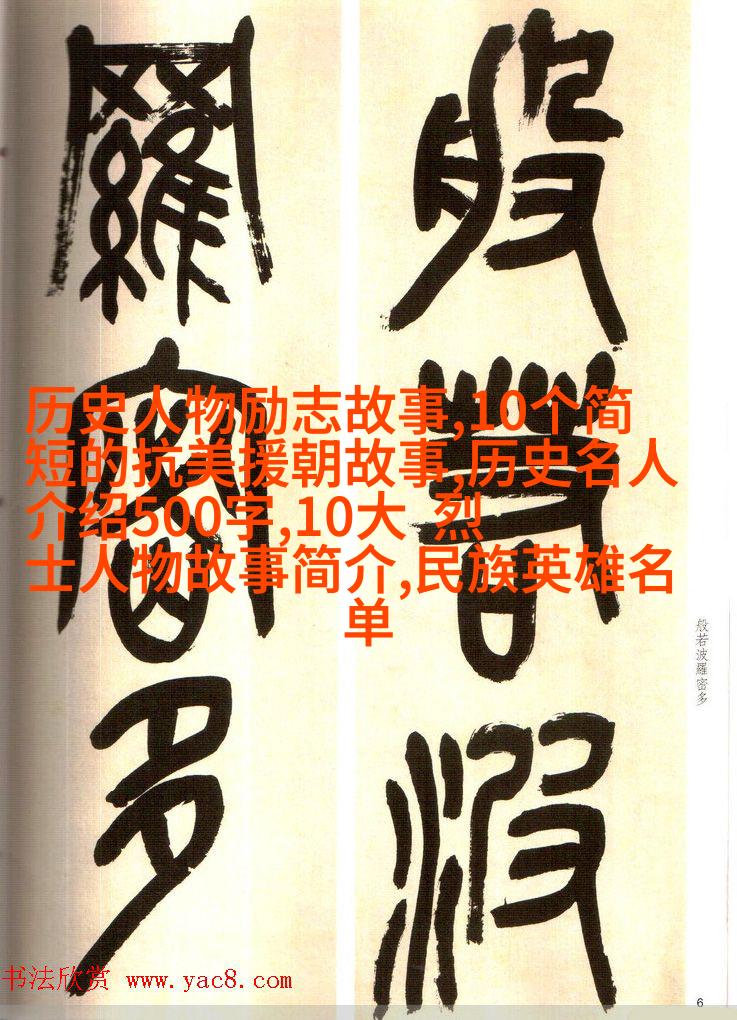 般若波
羅密多
历史人物励志故事,10个简
短的抗美援朝故事,历史名人
介绍500字,10大 烈
士人物故事简介,民族英雄名
单
般若波羅密多
书法欣赏 www.yac8.com
6